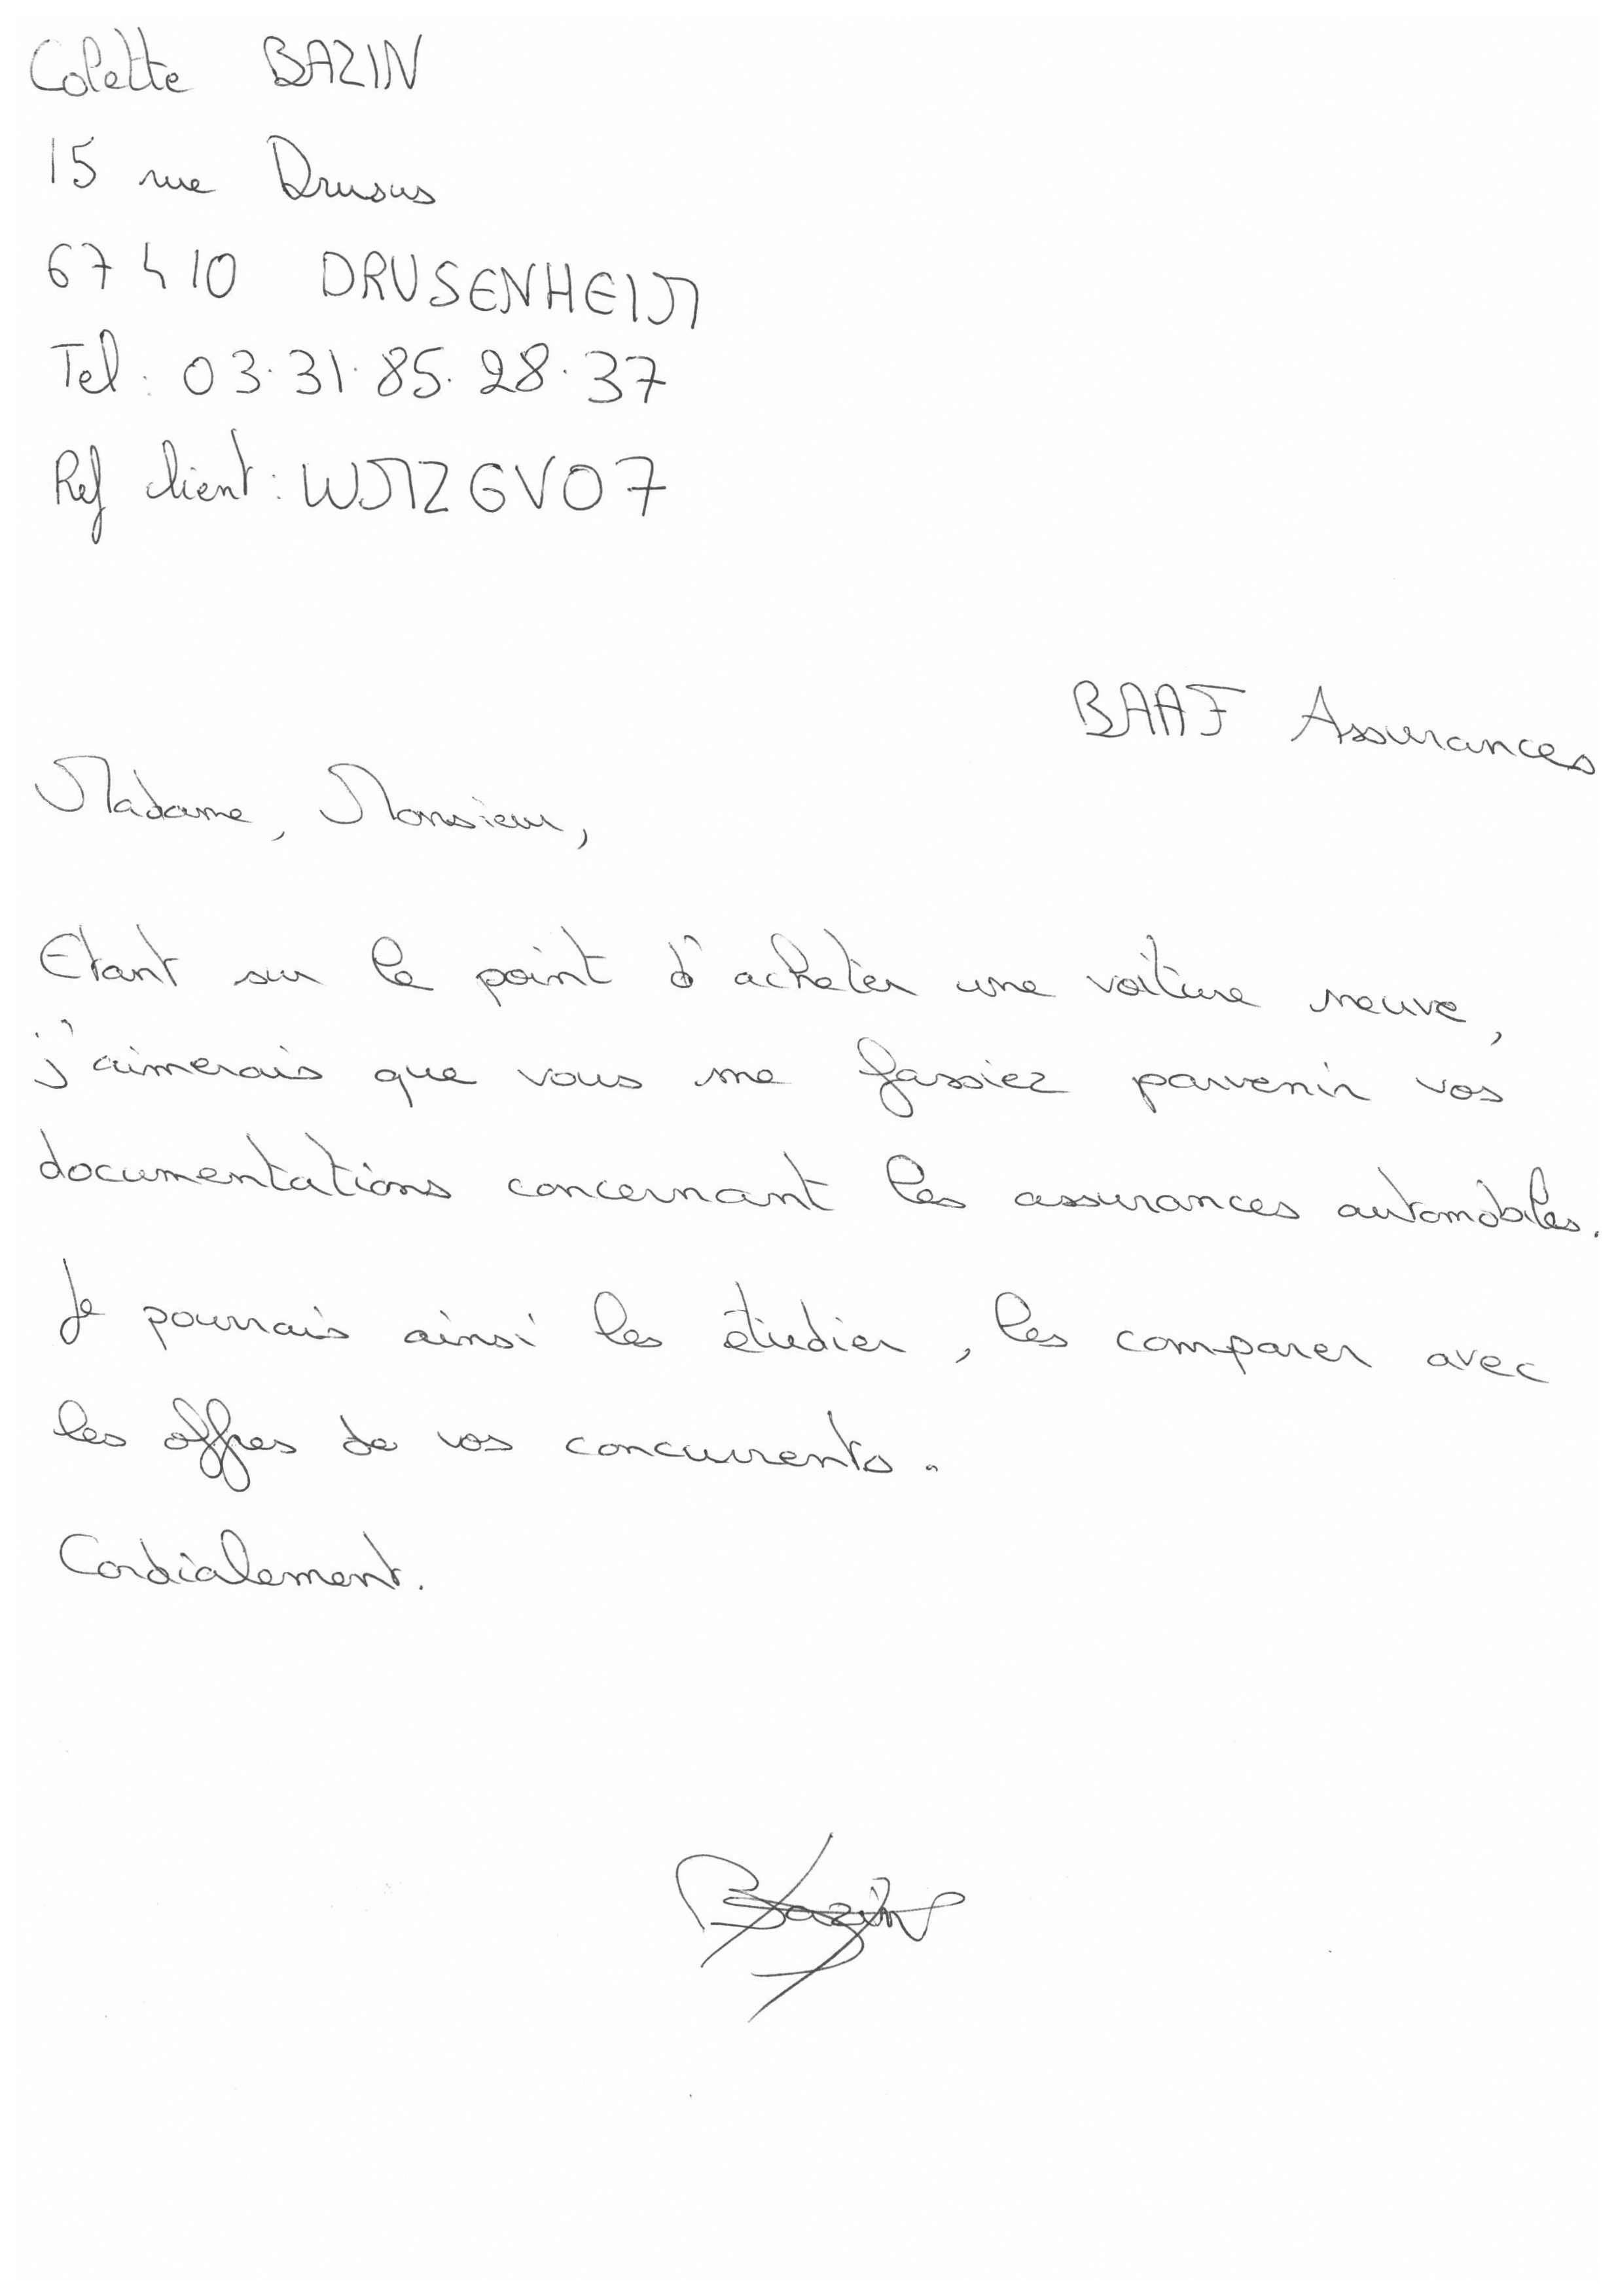 Colette BAZIN
15 rue Drusus
67410 DRUSENHEIM
Tel : 03.31.85.28.37
Ref client : WMZGV07
BAAF Assurances
Madame, Monsieur,
Etant sur le point d'acheter une voiture neuve,
j'aimerais que vous me fassiez parvenir vos
documentations concernant les assurances automobiles.
Je pourrais ainsi les étudier, les comparer avec
les offres de vos concurrents.
Cordialement.
Bazin